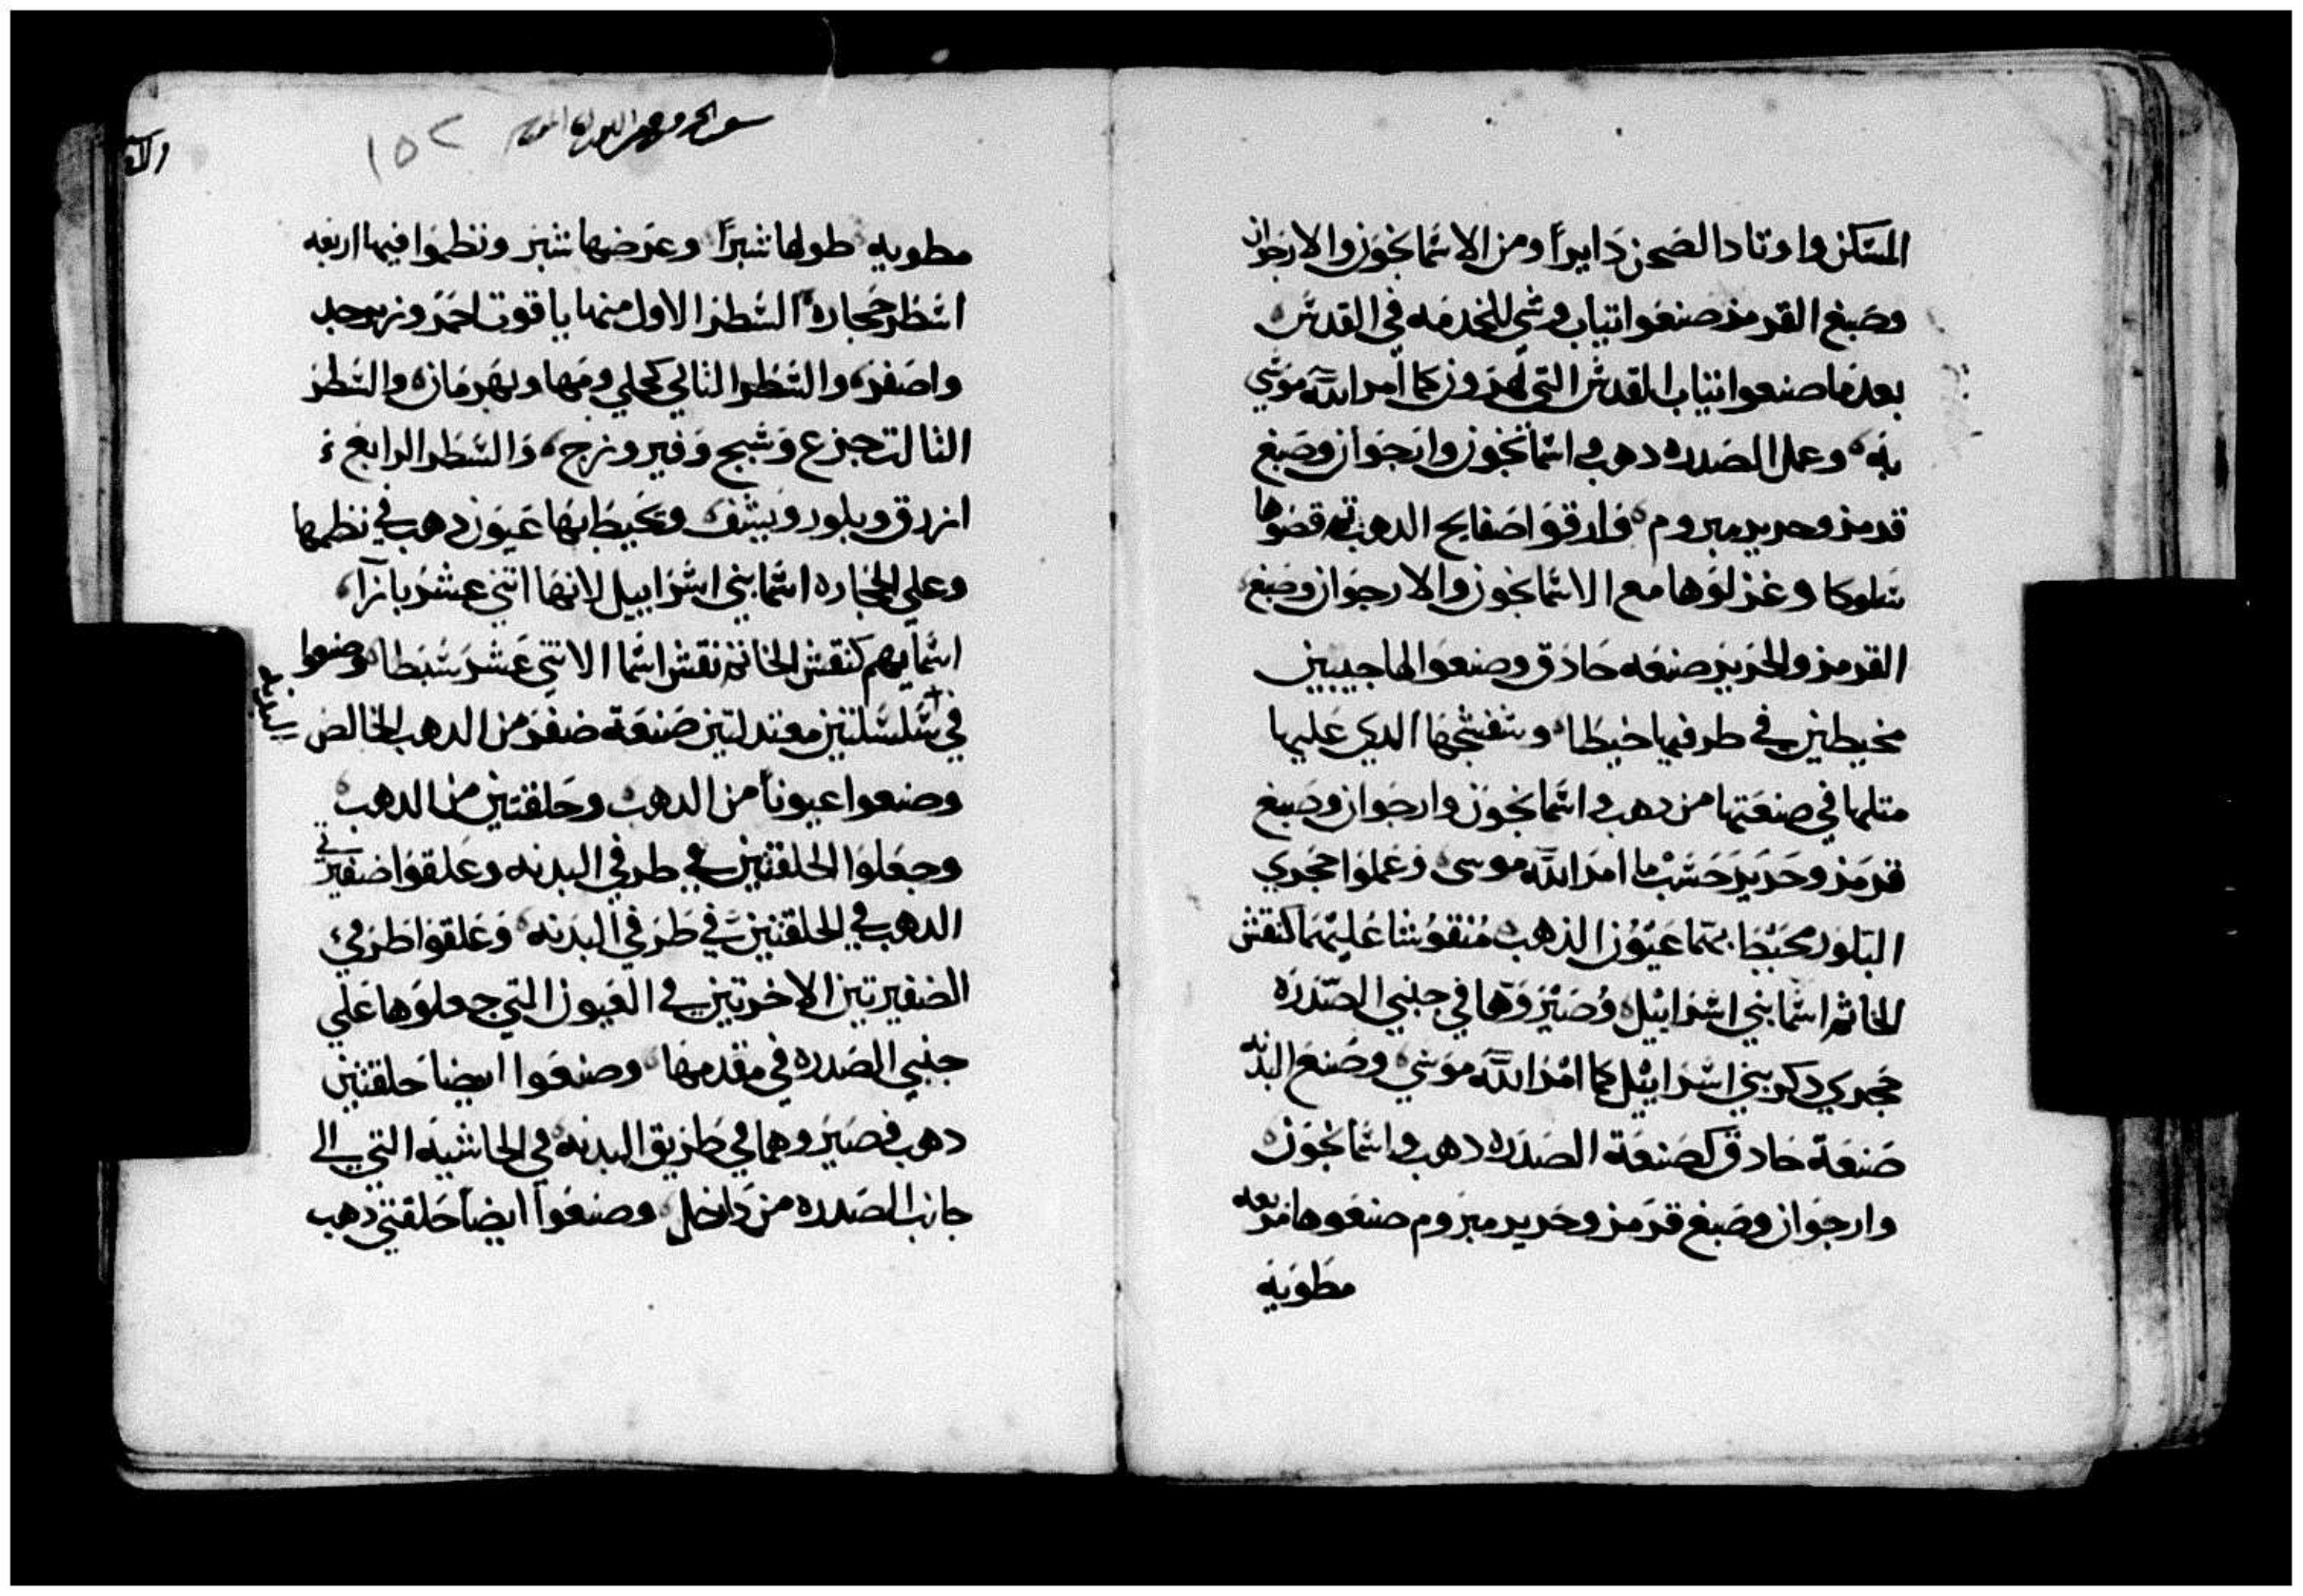 المسكن واوتاد الصحن دايراً ومن الاسمانجون والارجوان
وصبغ القرمز صنعوا تياب وشي للخدمه في القدس
بعدما صنعوا تياب القدس التي لهرون كما امر الله موسي
به وعمل الصدره دهب واسمانجون وارجوان وصبغ
قرمز وحرير مبروم فارقوا صفايح الدهب تم قصوها
سلوكا وغزلوها مع الاسمانجون والارجوان وصبغ
القرمز والحرير صنعه حادق وصنعوا لها جيبين
مخيطين في طرفيها خيطا وشفشجها الدي عليها
متلها في صنعتها من دهب واسمانجون وارجوان وصبغ
قرمز وحرير حسب ما امر الله موسى وعملوا حجري
البلور محيط بهما عيون الذهب منقوشا عليهما كنقش
الخاتم اسما بني اسراييل وصيروها في جنبي الصدره
حجري دكر بني اسراييل كما امر الله موسي وصنع البدنه
صنعة حادق كصنعة الصدره دهب واسمانجون
وارجوان وصبغ قرمز وحرير مبروم صنعوها مربعه
مطويه
١٥٢
مطويه طولها شبراً وعرضها شبر ونظموا فيها اربعه
اسطر حجاره السطر الاول منها ياقوت احمر وزبرجد
واصفر والسطر التاني كحلي ومها وبهرمان والسطر
التالت جزع وسبج وفيروزج والسطر الرابع
ازرق وبلور ويشف وتحيط بها عيون دهب في نظمها
وعلي الحجاره اسما بني اسراييل لانها اتني عشر بازآ
اسمايهم كنقش الخاتم نقش اسما الاتني عشر سبطا وصنعوا
في سلسلتين معتدلتين صنعة ضفر من الدهب الخالص
وصنعوا عيوناً من الدهب وحلقتين من الدهب
وجعلوا الحلقتين في طرفي البدنه وعلقوا ضفيرتي
الدهب في الحلقتين في طرفي البدنه وعلقوا طرفي
الضفيرتين الاخرتين في العيون التي جعلوها علي
جنبي الصدره في مقدمها وصنعوا ايضا حلقتين
دهب فصيروهما في طريق البدنه في الحاشيه التي الى
جانب الصدره من داخل وصنعوا ايضا حلقتي دهب